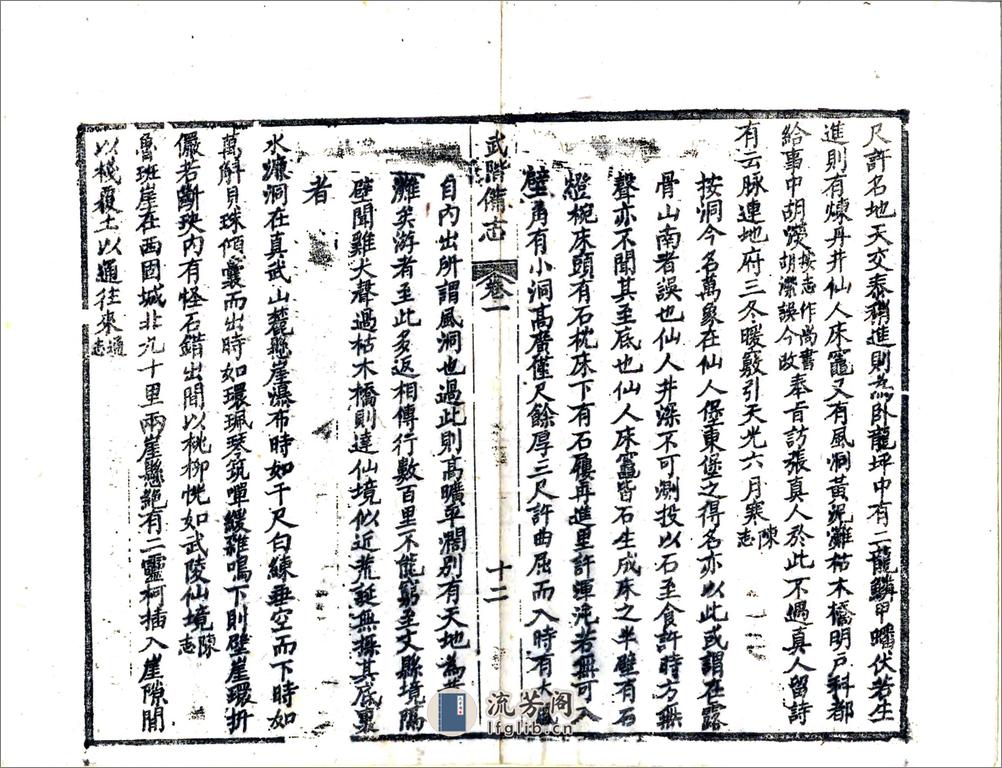 尺許名地天交泰稍進則為臥龍坪中有二龍鱗甲蟠伏若生
進則有煉丹井仙人床竈又有風洞黃泥灘枯木橋明戶科都
給事中胡濙按志作尚書胡濴誤今改奉旨訪張真人於此不遇真人留詩
有云脉連地府三冬暖竅引天光六月寒陳志
按洞今名萬象在仙人堡東堡之得名亦以此或謂在露
骨山南者誤也仙人井深不可測投以石至食許時方無
聲亦不聞其至底也仙人床竈皆石生成床之半壁有石
燈椀床頭有石枕床下有石履再進里許渾沌若無可入
壁角有小洞高廣僅尺餘厚三尺許曲屈而入時有大風
武階備志 卷一 十二
自內出所謂風洞也過此則高曠平濶別有天地為
灘矣游者至此多返相傳行數百里不能窮至文縣境隔
壁聞雞犬聲過枯木橋則達仙境似近荒誕無探其底裏
者
水濂洞在真武山麓懸崖瀑布時如千尺白練垂空而下時如
萬斛貝珠傾囊而出時如環珮琴筑嘽緩雜鳴下則壁崖環折
儼若斷玦內有怪石錯出間以桃柳恍如武陵仙境陳志
魯班崖在西固城北九十里兩崖懸絕有二靈柯插入崖隙間
以棧覆土以通往來通志
流芳阁
lfglib.cn